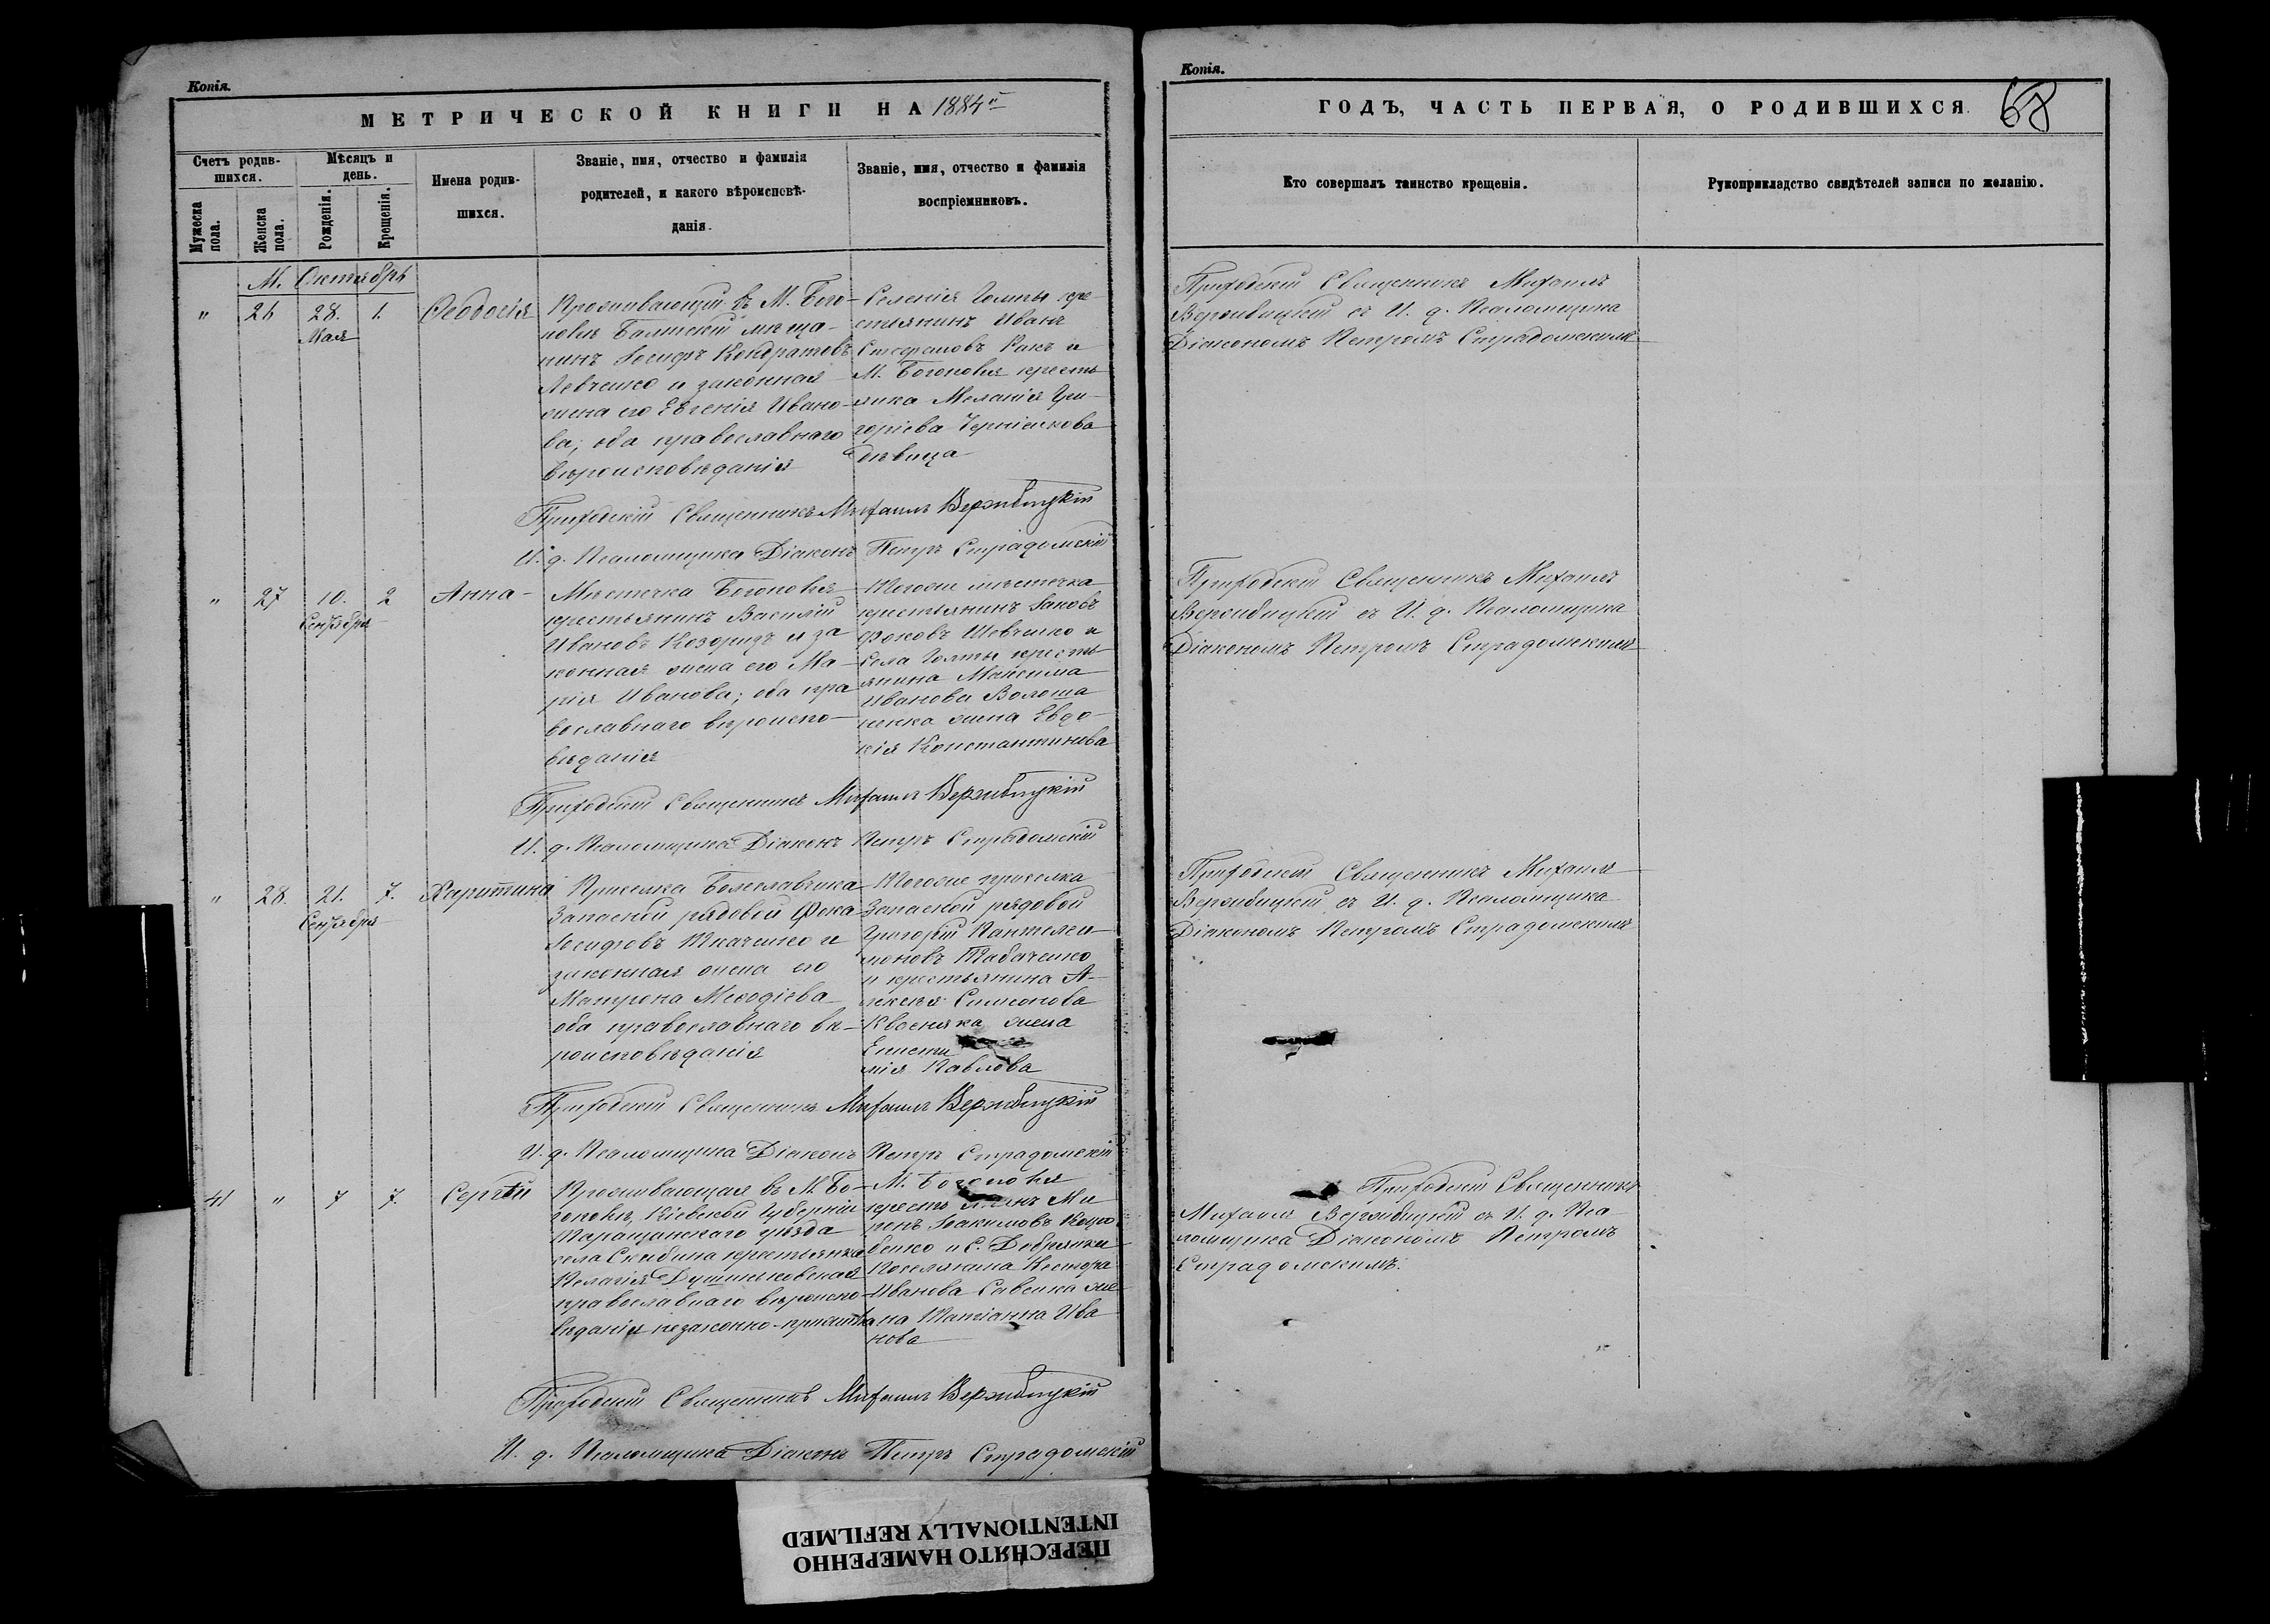 Копія.
МЕТРИЧЕСКОЙ КНИГИ НА 1884й
Счетъ родив-
шихся.
Мѣсяцъ и
день.
Имена родив-
шихся.
Званіе, имя, отчество и фамилія
родителей, и какого вѣроисповѣ-
данія.
Званіе, имя, отчество и фамилія
воспріемниковъ.
Мужеска
пола.
Женска
пола.
Рожденія.
Крещенія.
М. Октябрь
" 26 28. Мая 1. Ѳеодосія
Проживающій въ М. Бого-
полѣ Балтскій мѣща-
нинъ Іосифъ Кондратовъ
Левченко и законная
жена его Евгенія Ивано-
ва; оба православнаго
вѣроисповѣданія
Селенія Голты кре-
стьянинъ Иванъ
Стефановъ Какъ и
М. Богополя кресть
янка Меланія Гри-
горіева Чернієнкова
дѣвица
Приходскій Священникъ Михаилъ Вержбицкій
И. д. Псаломщика Діаконъ Петръ Страдомскій
" 27 10. Сентября 2 Анна
Мѣстечка Богополя
крестьянинъ Василій
Ивановъ Козоризъ и за
конная жена его Ма-
рія Иванова; оба пра
вославнаго вѣроиспо-
вѣданія
Тогоже мѣстечка
крестьянинъ Іаковъ
Фоковъ Шевченко и
Села Голты кресть
янина Максима
Иванова Волоша
ненка жена Евдо-
кія Константинова
Приходскій Священникъ Михаилъ Вержбицкій
И. д. Псаломщика Діаконъ Петръ Страдомскій
" 28. 21. Сентября 7. Харитина
Приселка Болеславчика
Запасный рядовой Фока
Іосифовъ Ткаченко и
законная жена его
Матрона Меѳодіева
оба православнаго вѣ-
роисповѣданія
Тогоже приселка
Запасной рядовой
Григорій Пантелеи-
моновъ Табаченко
и крестьянина А-
лексѣя Симеонова
Квасняка жена
Еписти
мія Павлова
Приходскій Священникъ Михаилъ Вержбицкій
И. д. Псаломщика Діаконъ Петръ Страдомскій
41 " 7 7. Сергѣй
Проживающая въ М. Бо-
гополѣ, Кіевской Губерніи
Таращанскаго уѣзда
села Скибина крестьянка
Пелагія Душниковская
православнаго вѣроиспо-
вѣданія незаконно-прижитъ
М. Богополя
крестьянинъ Ми
ронъ Іоакимовъ Коцю
бенко и С. Добрянки
Поселянина Нестора
Иванова Савенка же
на Татіанна Ива
нова
Приходскій Священникъ Михаилъ Вержбицкій
И. д. Псаломщика Діаконъ Петръ Страдомскій
Копія.
ГОДЪ, ЧАСТЬ ПЕРВАЯ, О РОДИВШИХСЯ.
68
Кто совершалъ таинство крещенія.
Рукоприкладство свидѣтелей записи по желанію.
Приходскій Священникъ Михаилъ
Вержбицкій съ И. д. Псаломщика
Діакономъ Петромъ Страдомскимъ
Приходскій Священникъ Михаилъ
Вержбицкій съ И. д. Псаломщика
Діакономъ Петромъ Страдомскимъ
Приходскій Священникъ Михаилъ
Вержбицкій съ И. д. Псаломщика
Діакономъ Петромъ Страдомскимъ
Приходскій Священникъ
Михаилъ Вержбицкій съ И. д. Пса-
ломщика Діакономъ Петромъ
Страдомскимъ.
ПЕРЕСНЯТО НАМЕРЕННО
INTENTIONALLY REFILMED